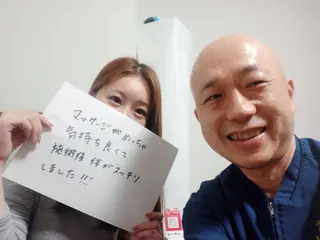 マッサージがめっちゃ
気持ち良くて
施術後 体がスッキリ
しました!!!